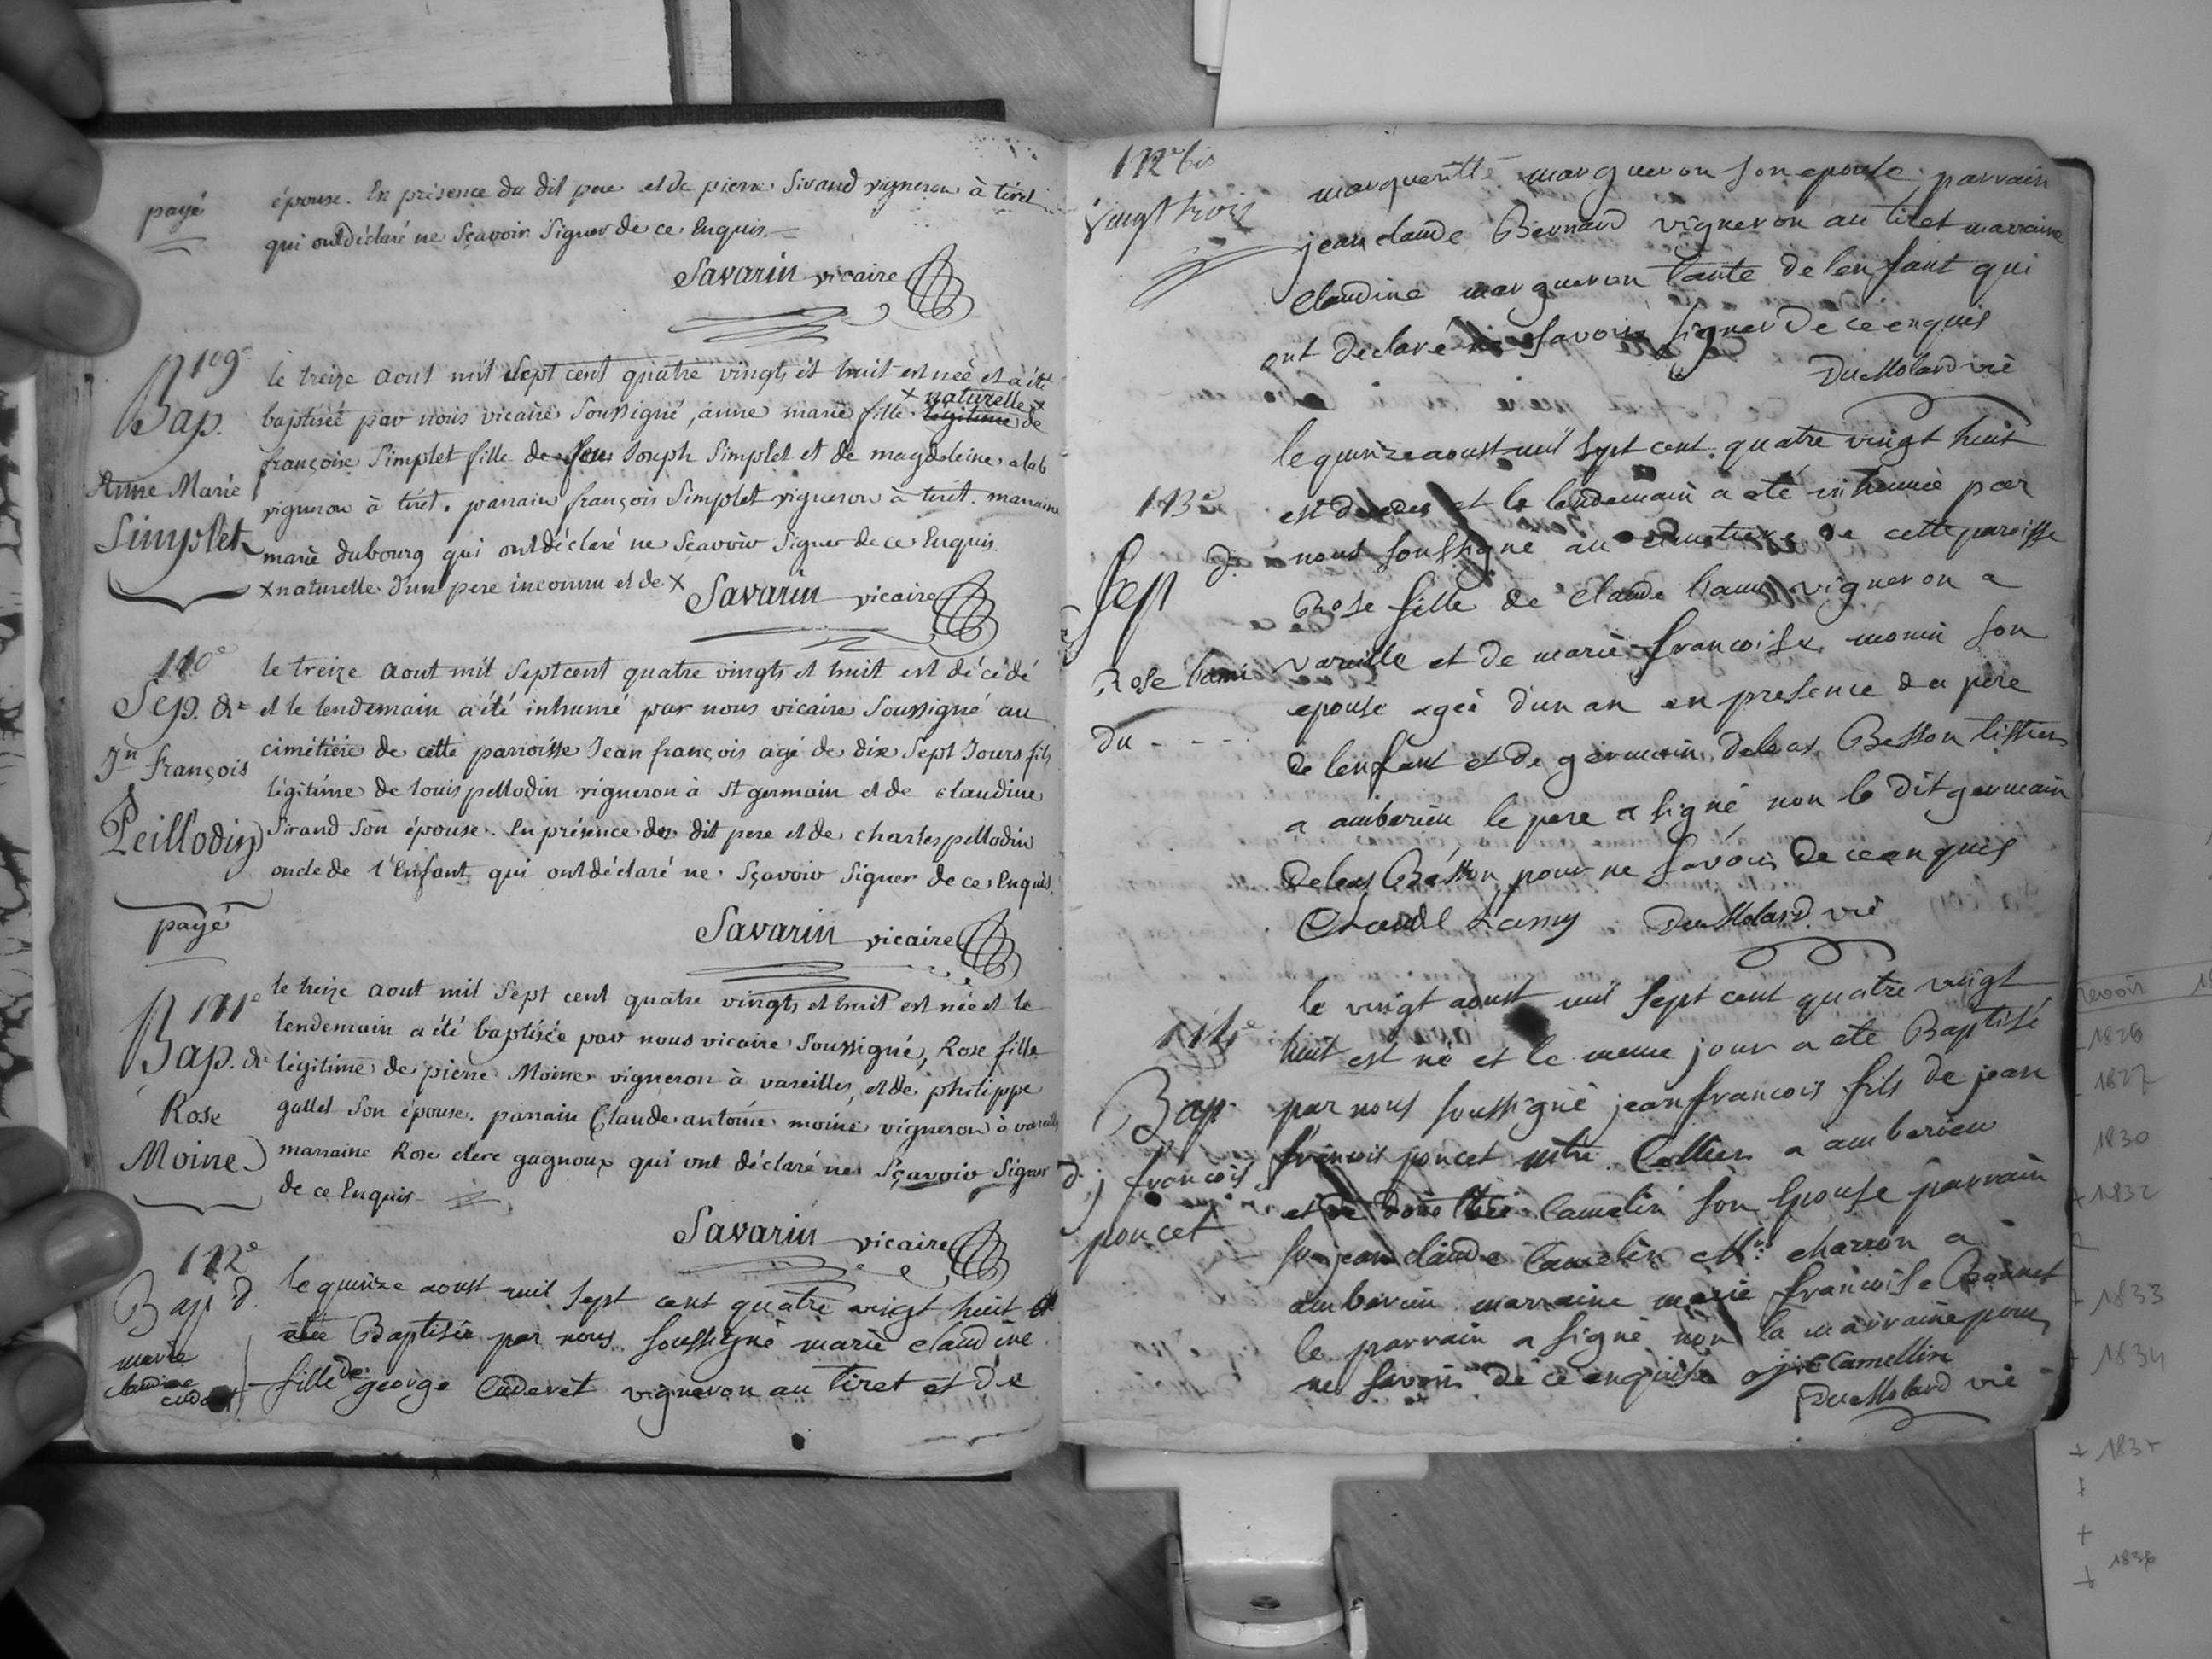 payé
épouse. En présence du dit pere et de pierre Sirand vigneron à tiret
qui ont déclaré ne Sçavoir Signer de ce Enquis.
Savarin vicaire
109e
Bap.
Anne Marie
Simplet
le treize aout mil Sept cent quatre vingts et huit est néé et a été
baptiséé par nous vicaire Soussigné, anne marie fille legitime de
x naturelle x
françoise Simplet fille de feu Joseph Simplet et de magdeleine alab
vigneron à tiret. parrain françois Simplet vigneron à tiret. marraine
marie dubourg qui ont déclaré ne Scavoir Signer de ce Enquis.
x naturelle d'un pere inconnu et de x
Savarin vicaire
110e
Sep. de
Jn françois
Peillodin
payé
le treize aout mil Sept cent quatre vingts et huit est décédé
et le lendemain a été inhumé par nous vicaire Soussigné au
cimétiére de cette parroisse Jean françois agé de dix Sept Jours fils
légitime de louis pellodin vigneron à St germain et de claudine
Sirand Son épouse. En présence du dit pere et de charles pellodin
oncle de l'Enfant qui ont déclaré ne Sçavoir Signer de ce Enquis.
Savarin vicaire
111e
Bap. de
Rose
Moine
le treize aout mil Sept cent quatre vingts et huit est néé et le
lendemain a été baptiséé par nous vicaire Soussigné, Rose fille
légitime de pierre Moine vigneron à vareilles, et de philippe
gallet Son épouse. parrain Claude antoine moine vigneron à vareilles
marraine Rose clerc gagnoux qui ont déclaré ne Sçavoir Signer
de ce Enquis
Savarin vicaire
112e
Bap d.
marie
claudine
le quinze aoust mil Sept cent quatre vingt huit a
étée Baptisée par nous soussigné marie claudine
fille de george Caderet vigneron au tiret et de
112e bis
vingt trois
margueritte margueron son epouse, parrain
jean claude Bernard vigneron au tiret marraine
Claudine margueron tante de lenfant qui
ont declaré ne Savoir signer de ce enquis
DuMolard vic
113e
Sep d.
Rose lami
du - - -
le quinze aoust mil Sept cent quatre vingt huit
est decedes et le lendemain a eté inhumée par
nous soussigné au cimetiere de cette paroisse
Rose fille de Claude lami vigneron a
vareille et de marie francoise monin son
epouse agée d'un an en presence du pere
de lenfant et de germain deleas Besson tissier
a amberieu le pere a signé non le dit germain
deleas Besson pour ne savoir de ce enquis
Claude Lamy DuMolard vic
114e
Bap
d. j francois
poncet
le vingt aoust mil Sept cent quatre vingt
huit est né et le meme jour a eté Baptisé
par nous soussigné jean francois fils de jean
francois poncet mtre Cellier a amberieu
et de Camelin son Epouse parrain
Sr jean claude Camelin Mtre charron a
amberieu marraine marie francoise Bonnet
le parrain a signé non la marraine pour
ne savoir de ce enquise j C Camellin
DuMolard vic
1826
1827
1830
+ 1832
+ 1833
+ 1834
+ 1835
+
+
+ 1836